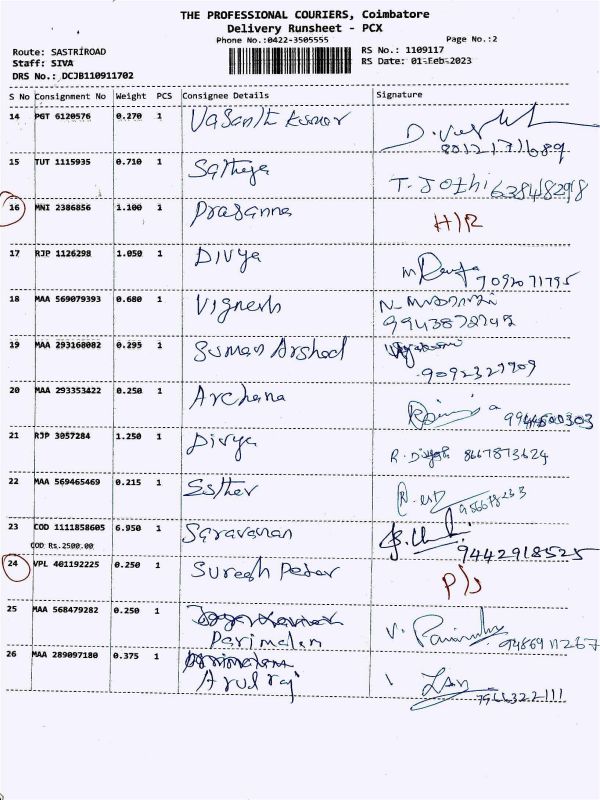 THE PROFESSIONAL COURIERS, Coimbatore
Delivery Runsheet - PCX
Phone No.:0422-3505555 Page No.:2
Route: SASTRIROAD RS No.: 1109117
Staff: SIVA RS Date: 01-Feb-2023
DRS No.: DCJB110911702
S No Consignment No Weight PCS Consignee Details Signature
14 PGT 6120576 0.270 1 Vasanth Kumar
15 TUT 1115935 0.710 1 Sathya T. Jothi
16 MNI 2386856 1.100 1 Prasanna H)R
17 RJP 1126298 1.050 1 Divya 7092071795
18 MAA 569079393 0.680 1 Vignesh
19 MAA 293168082 0.295 1 Suman Arshad
9092327909
20 MAA 293353422 0.250 1 Archana
21 RJP 3057284 1.250 1 Divya 8667873624
22 MAA 569465469 0.215 1 Esther
23 COD 1111858605 6.950 1 Saravanan
COD Rs.2500.00 9442918525
24 VPL 401192225 0.250 1 Suresh Peter
25 MAA 568479282 0.250 1
Parimalam
26 MAA 289097180 0.375 1
Arul raj